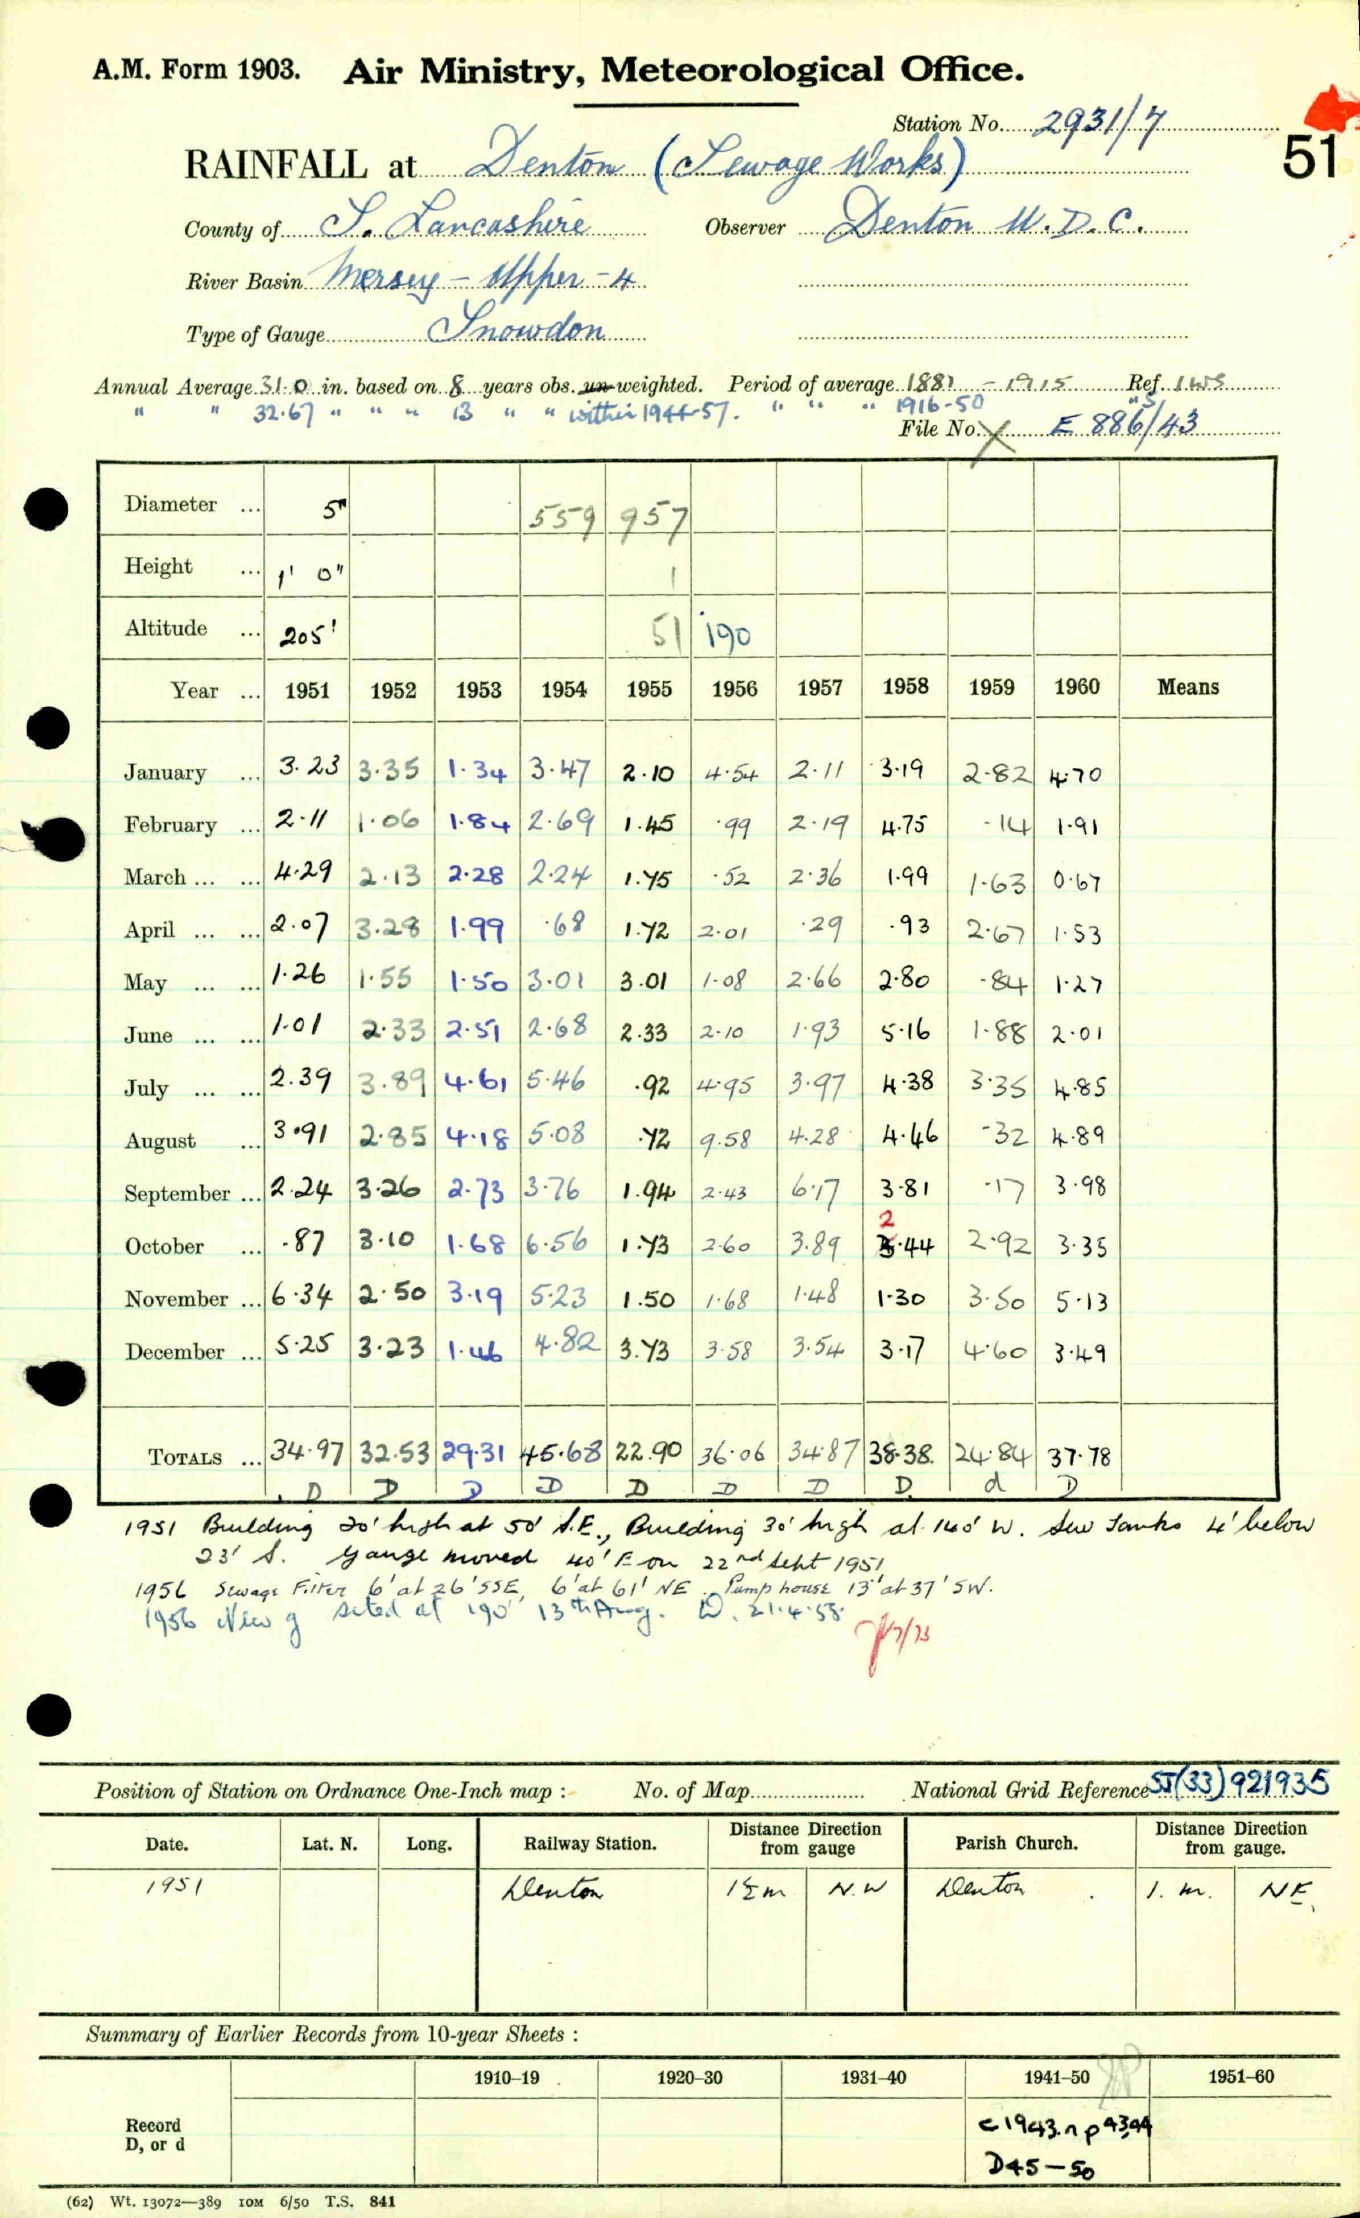 A.M. Form 1903. Air Ministry, Meteorological Office.
Station No. 2931/7
51
RAINFALL at Denton (Sewage Works)
County of S. Lancashire Observer Denton U.D.C.
River Basin Mersey - Upper - 4
Type of Gauge Snowdon
Annual Average 31.0 in. based on 8 years obs. un-weighted. Period of average 1881 - 1915 Ref. IWS
" " 32.67 " " " 13 " " within 1944-57. " " " 1916-50 "
File No. X E 886/43
Diameter ... 5" 559 957
Height ... 1' 0" 1
Altitude ... 205' 51 190
Year ... 1951 1952 1953 1954 1955 1956 1957 1958 1959 1960 Means
January ... 3.23 3.35 1.34 3.47 2.10 4.54 2.11 3.19 2.82 4.70
February ... 2.11 1.06 1.84 2.69 1.45 .99 2.19 4.75 .14 1.91
March ... ... 4.29 2.13 2.28 2.24 1.75 .52 2.36 1.99 1.63 0.67
April ... ... 2.07 3.28 1.99 .68 1.72 2.01 .29 .93 2.67 1.53
May ... ... 1.26 1.55 1.50 3.01 3.01 1.08 2.66 2.80 .84 1.27
June ... ... 1.01 2.33 2.51 2.68 2.33 2.10 1.93 5.16 1.88 2.01
July ... ... 2.39 3.89 4.61 5.46 .92 4.95 3.97 4.38 3.35 4.85
August ... 3.91 2.85 4.18 5.08 .72 9.58 4.28 4.46 .32 4.89
September ... 2.24 3.26 2.73 3.76 1.94 2.43 6.17 3.81 .17 3.98
2
October ... .87 3.10 1.68 6.56 1.73 2.60 3.89 .44 2.92 3.35
November ... 6.34 2.50 3.19 5.23 1.50 1.68 1.48 1.30 3.50 5.13
December ... 5.25 3.23 1.46 4.82 3.73 3.58 3.54 3.17 4.60 3.49
TOTALS ... 34.97 32.53 29.31 45.68 22.90 36.06 34.87 38.38. 24.84 37.78
D D D D D D D D d D
1951 Building 20' high at 50' S.E., Building 30' high at 140' W. Sew Tanks 4' below
23' S. Gauge moved 40' E on 22nd Sept 1951
1956 Sewage Filter 6' at 26' SSE, 6' at 61' NE. Pump house 13' at 37' SW.
1956 New g sited at 190' 13th Aug. D. 21.4.58
Position of Station on Ordnance One-Inch map : No. of Map National Grid Reference SJ(33)921935
Date. Lat. N. Long. Railway Station. Distance from Direction gauge Parish Church. Distance from Direction gauge.
1951 Denton 1½ m N.W Denton 1. m. NE.
Summary of Earlier Records from 10-year Sheets :
1910–19 1920–30 1931–40 1941–50 1951–60
Record D, or d c 1943. n p 43,44
D45-50
(62) Wt. 13072—389 10M 6/50 T.S. 841